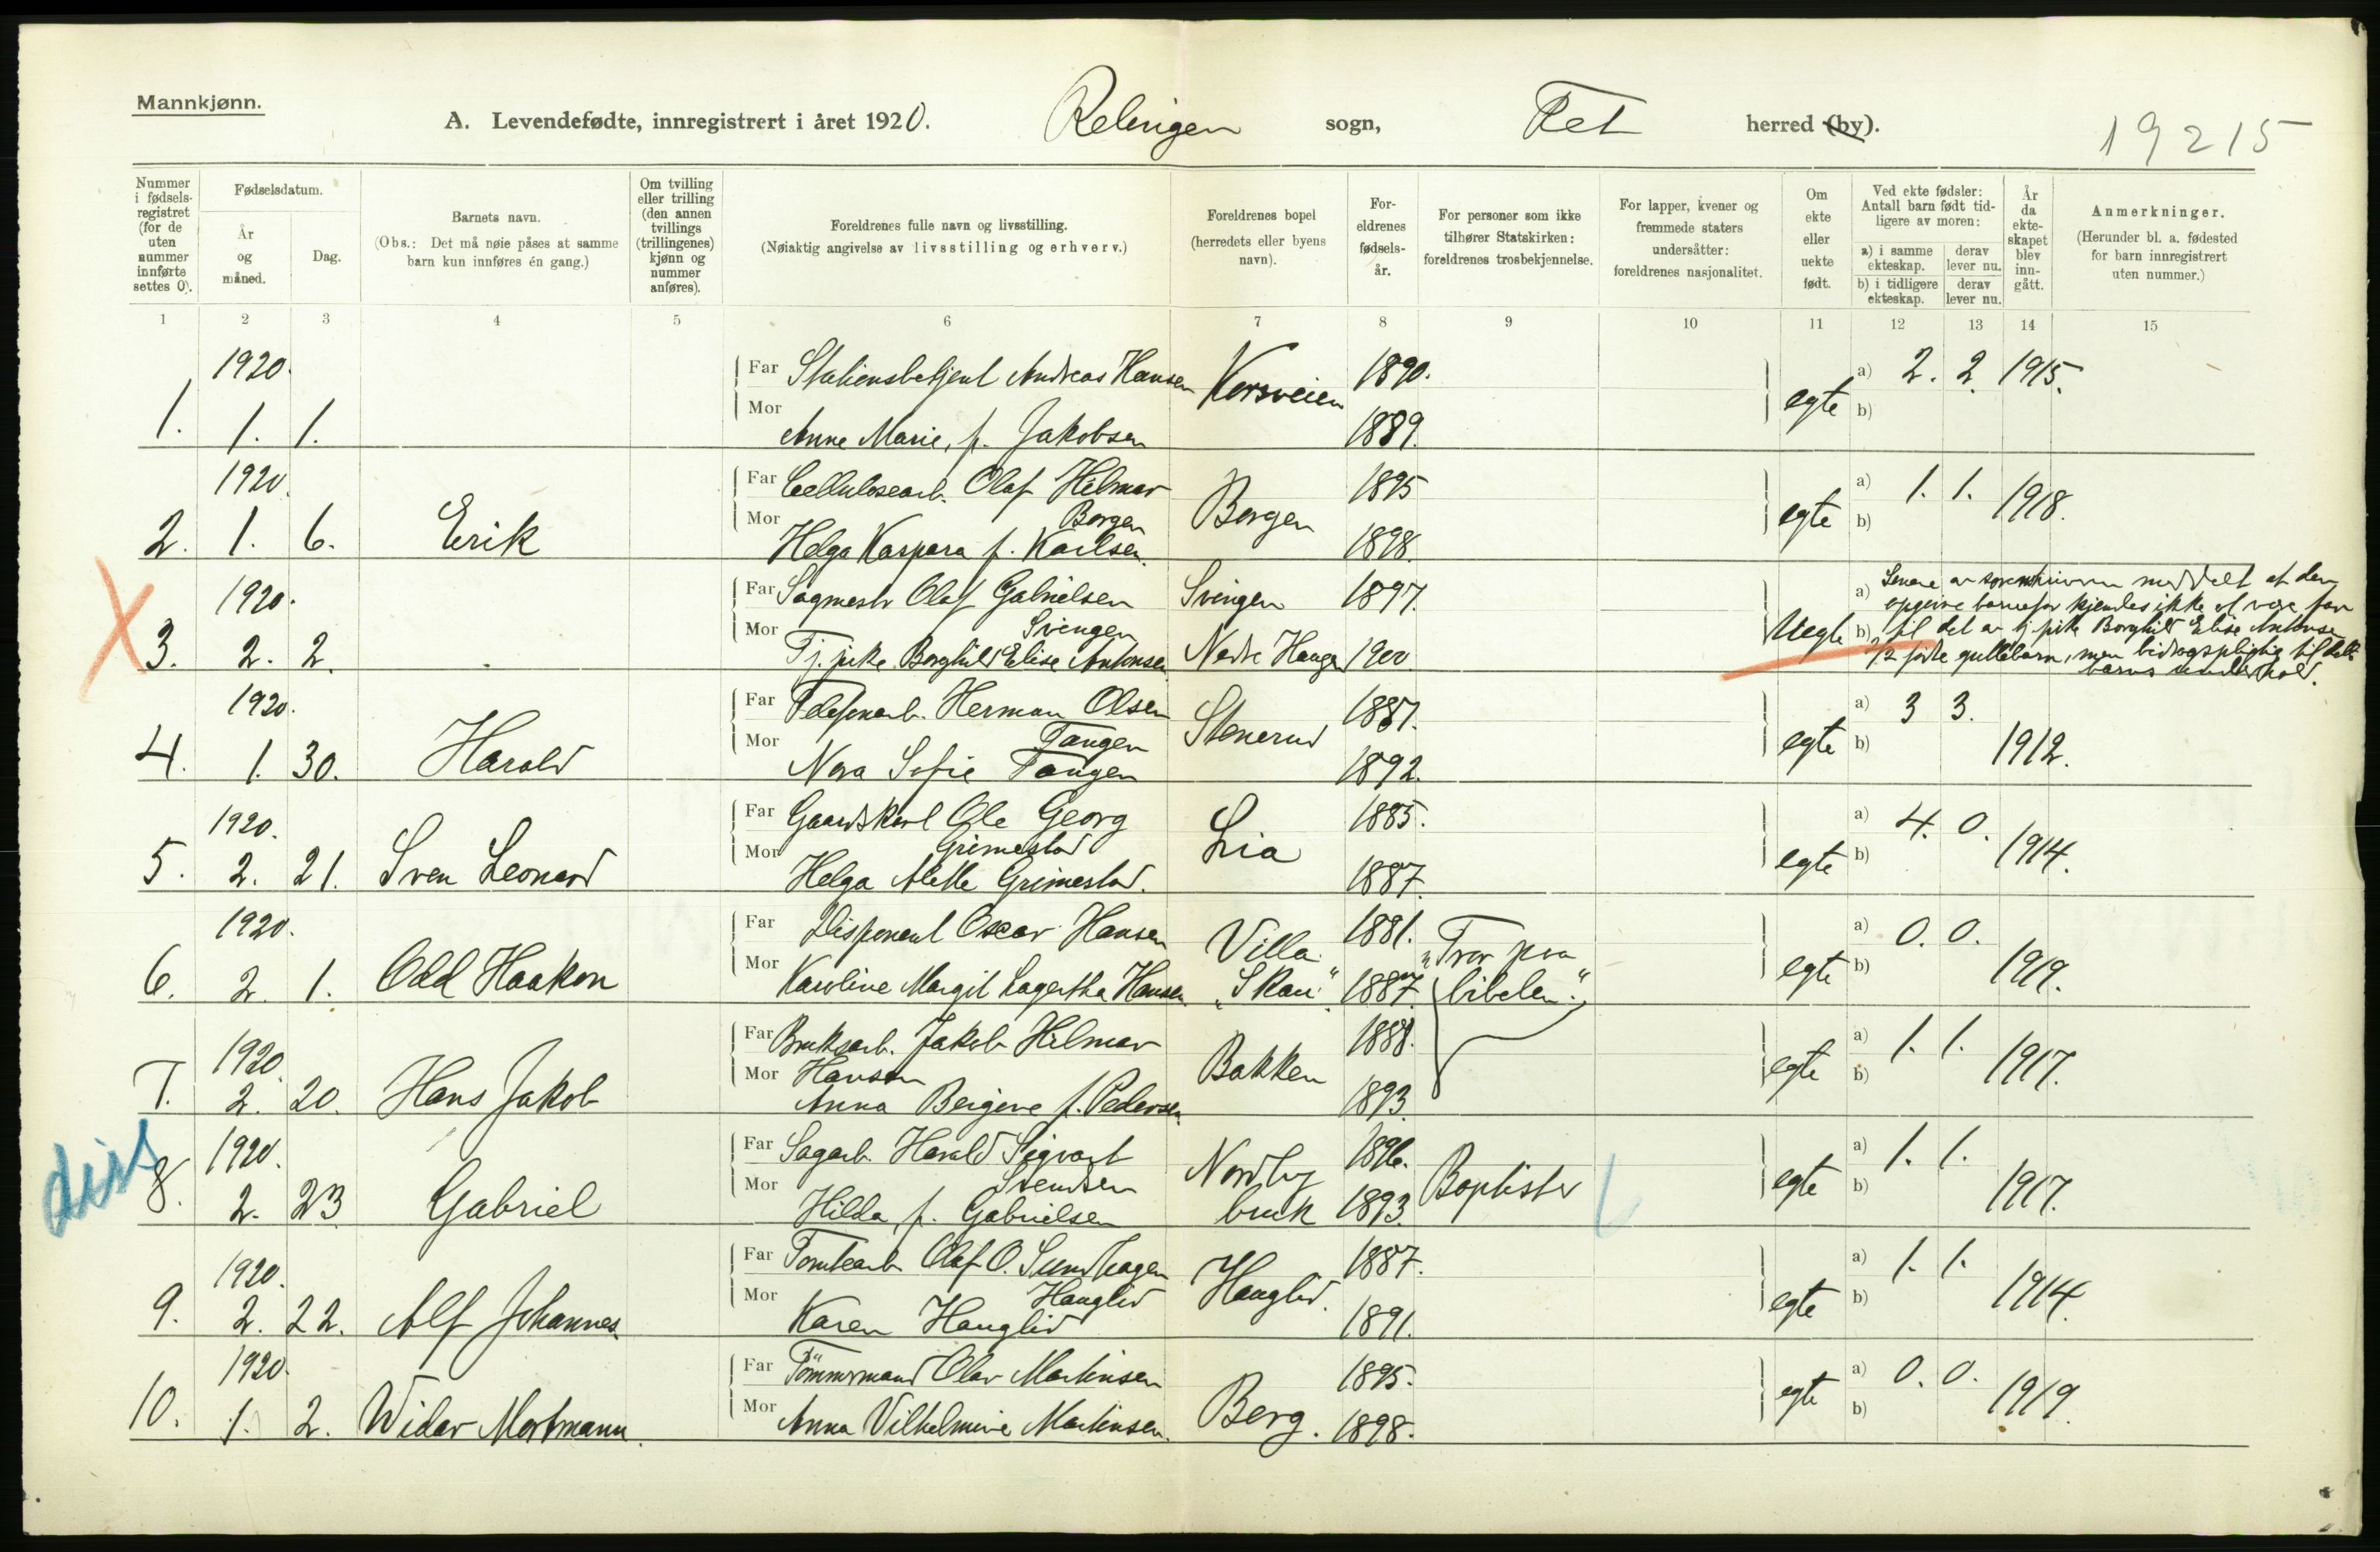 Mannkjønn.
A. Levendefødte, innregistrert i året 1920. Relingen sogn, Fet herred (by).
19215
Nummer i fødselsregistret (for de uten nummer innførte settes 0).
Fødselsdatum.
År og måned.
Dag.
Barnets navn.
(Obs.: Det må nøie påses at samme barn kun innføres én gang.)
Om tvilling eller trilling (den annen tvillings (trillingenes) kjønn og nummer anføres).
Foreldrenes fulle navn og livsstilling.
(Nøiaktig angivelse av livsstilling og erhverv.)
Foreldrenes bopel (herredets eller byens navn).
Foreldrenes fødselsår.
For personer som ikke tilhører Statskirken: foreldrenes trosbekjennelse.
For lapper, kvener og fremmede staters undersåtter: foreldrenes nasjonalitet.
Om ekte eller uekte født.
Ved ekte fødsler: Antall barn født tidligere av moren:
a) i samme ekteskap. derav lever nu.
b) i tidligere ekteskap. derav lever nu.
År da ekteskapet blev inngått.
Anmerkninger.
(Herunder bl. a. fødested for barn innregistrert uten nummer.)
1 2 3 4 5 6 7 8 9 10 11 12 13 14 15
1920. Far Stationsbetjent Andreas Hansen Korsveien 1890. a) 2. 2. 1915.
1. 1. 1. Mor Anne Marie, f. Jakobsen 1889. egte b)
1920. Far Cellulosearb. Olaf Hilmar Borgen 1895 a) 1. 1. 1918.
Borgen
2. 1. 6. Erik Mor Helga Kaspara f. Karlsen. 1898. egte b)
1920. Far Sagmestr Olaf Gabrielsen Svingen 1897. a) Senere av sorenskriveren meddelt at den
opgivne barnefar kjendes ikke at være far
Svingen
X 3. 2. 2. Mor Tj. pike Borghild Elise Antonsen Nedre Haugen 1900 Uegte b) til det av tj. pike Borghild Elise Antonsen
2/2 fødte guttebarn, men bidragspligtig til dette
barns underhold.
1920. Far Telefonarb. Herman Olsen Stenerud 1887. a) 3 3. 1912.
Tangen
4. 1. 30. Harald Mor Nora Sofie Tangen 1892. egte b)
1920. Far Gaardskarl Ole Georg Lia 1885. a) 4. 0. 1914.
Grimestad
5. 2. 21. Sven Leonard Mor Helga Alette Grimestad. 1887. egte b)
1920. Far Disponent Oscar Hansen Villa 1881. "Tror paa a) 0. 0. 1919.
6. 2. 1. Odd Haakon Mor Karoline Margit Lagertha Hansen "Skau". 1887. bibelen". egte b)
1920. Far Bruksarb. Jakob Hilmar Bakken 1888. a) 1. 1. 1917.
Hansen
7. 2. 20. Hans Jakob Mor Anna Bergine f. Pedersen. 1893. egte b)
diss
1920. Far Sagarb. Harald Sigvart Nordby 1896. Baptister a) 1. 1. 1917.
Svendsen
8. 2. 23 Gabriel Mor Hilda f. Gabrielsen bruk 1893. egte b)
1920. Far Tomtearb Olaf O. Sundhagen Hauglid. 1887. a) 1. 1. 1914.
Hauglid
9. 2. 22. Alf Johannes. Mor Karen Hauglid 1891. egte b)
1920. Far Tömmermand Olav Martinsen Berg. 1895. a) 0. 0. 1919.
10. 1. 2. Widar Mortmann. Mor Anna Vilhelmine Martinsen. 1898. egte b)